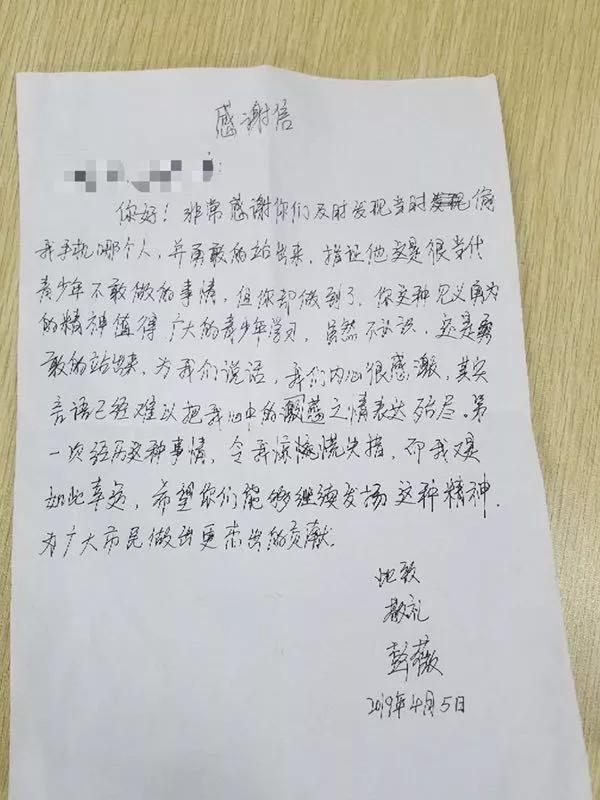 感谢信
你好！非常感谢你们及时发现当时偷
我手机哪个人，并勇敢的站出来，指证他这是很当代
青少年不敢做的事情，但你却做到了，你这种见义勇为
的精神值得广大的青少年学习，虽然不认识，还是勇
敢的站出来，为我们说话，我们内心很感激，其实
言语已经难以把我心中的感之情表达殆尽。第
一次经历这种事情，令我慌失措，而我又是
如此幸运，希望你们能够继续发扬这种精神，
为广大市民做出更杰出的贡献。
此致
敬礼
彭薇
2019年4月5日